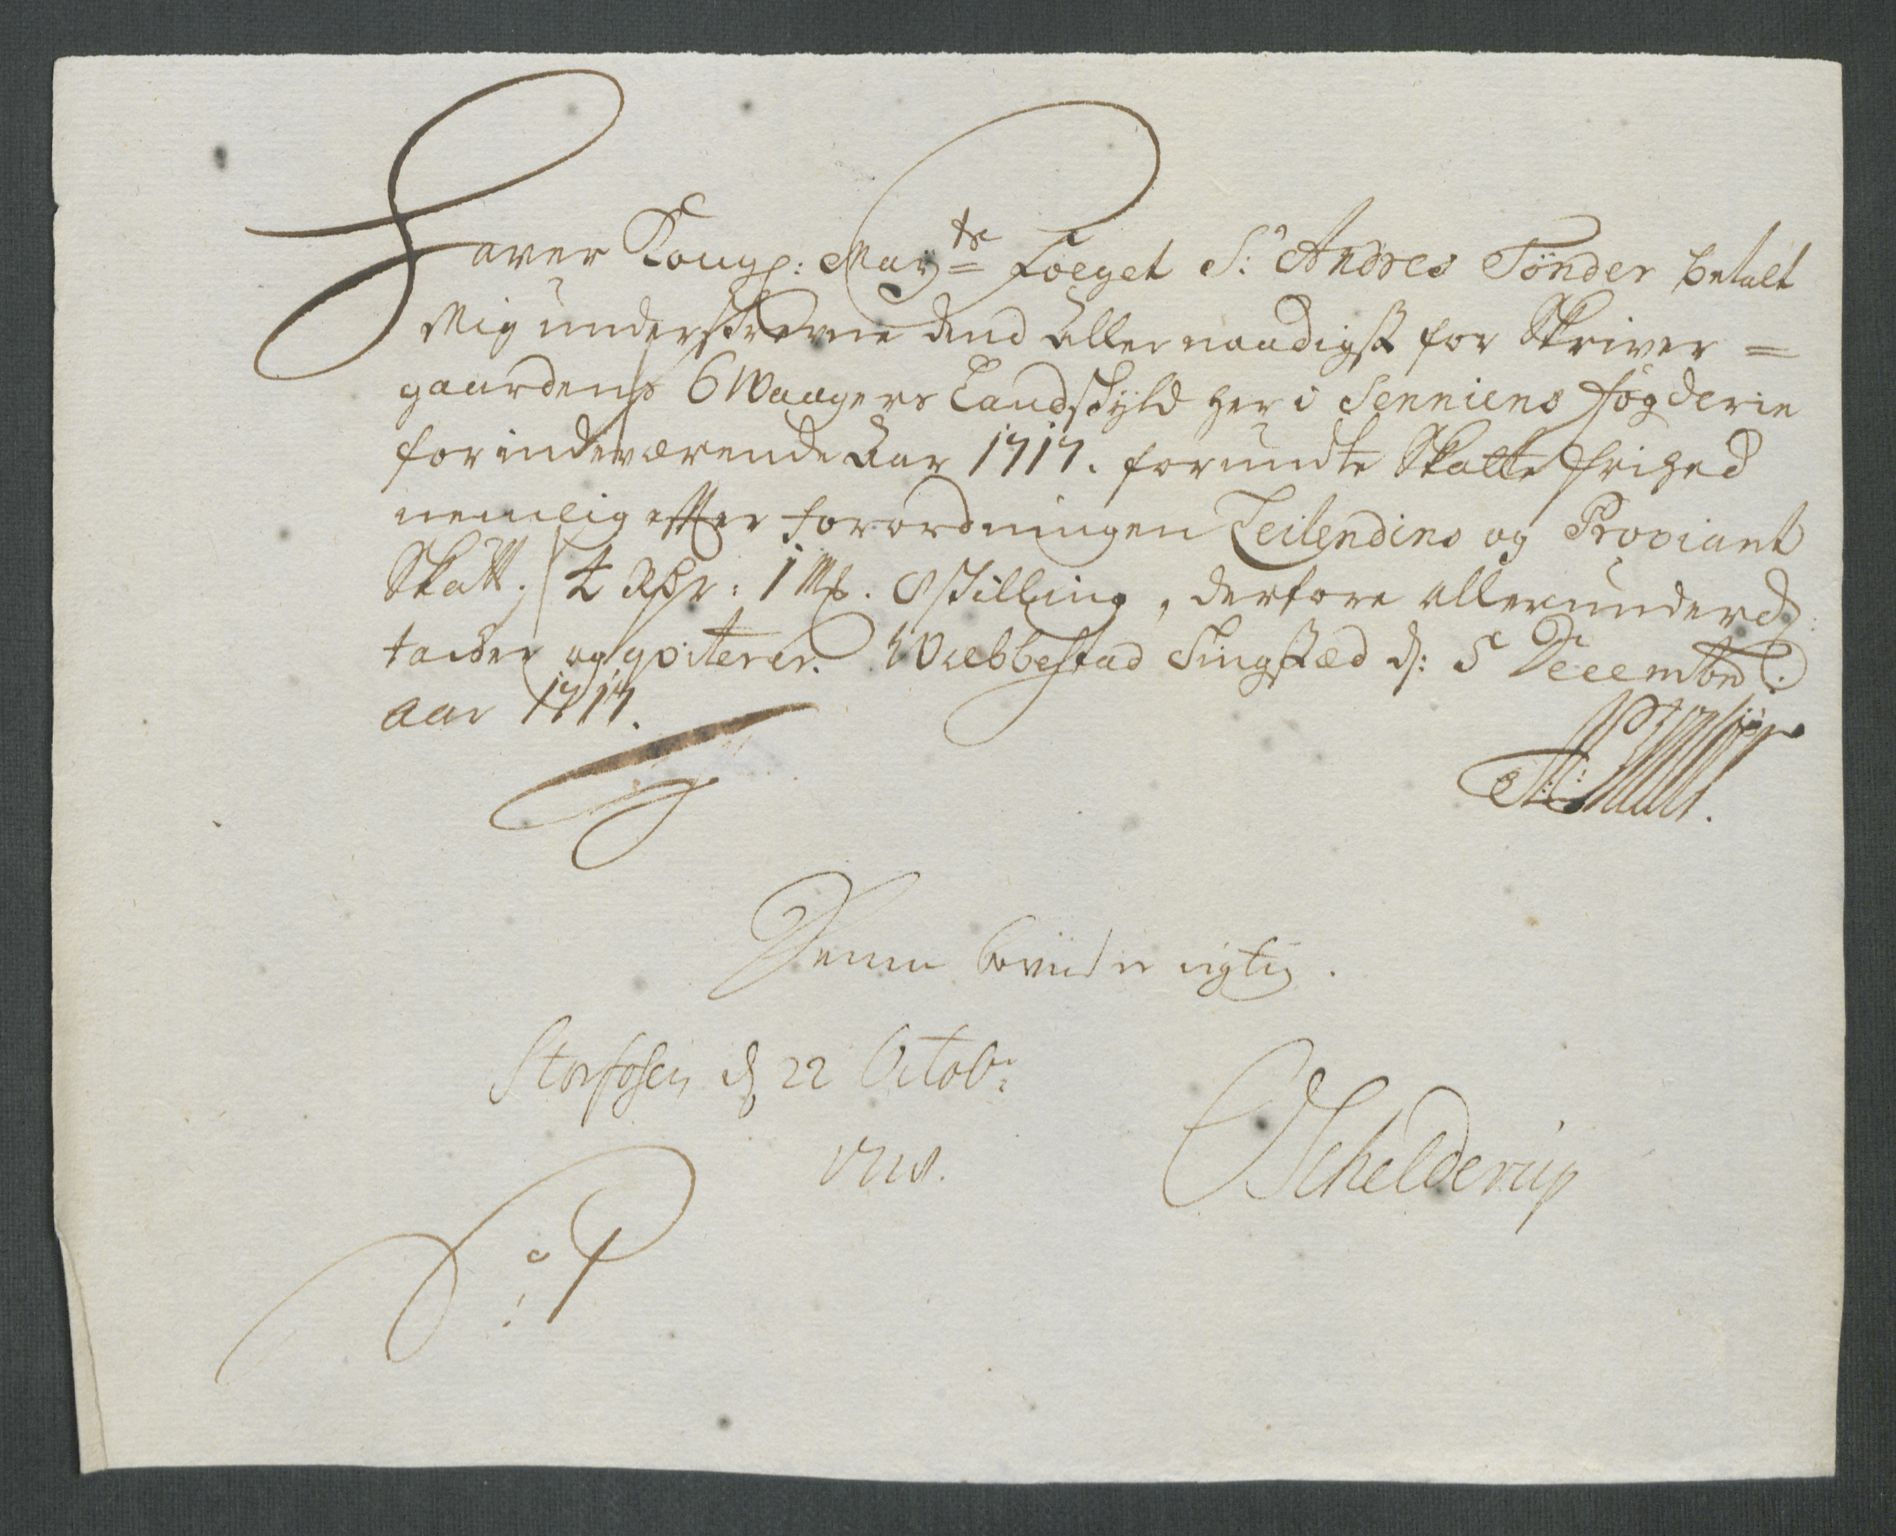 Haver Kongl: May:ts Foeget Sr: Andres Tønder betalt
Mig underskrevne dend Allernaadigst for Skriver =
gaardens 6 Waagers Landskyld her i Senniens fogderie
for indeværende Aar 1717. forundte Skatte frihed
nemlig efter forordningen Leilendins og Proviant
Skatt; 4 Rdr: 1 Mk. 8 skilling, derfore allerunderd:
tacker og qviterer. Wæbbestad Tingsted d: 5 Decembr:
aar 1717.
Denne beviis er rigtig.
Storfosen d 22 Octobr:
1718.
Schelderup